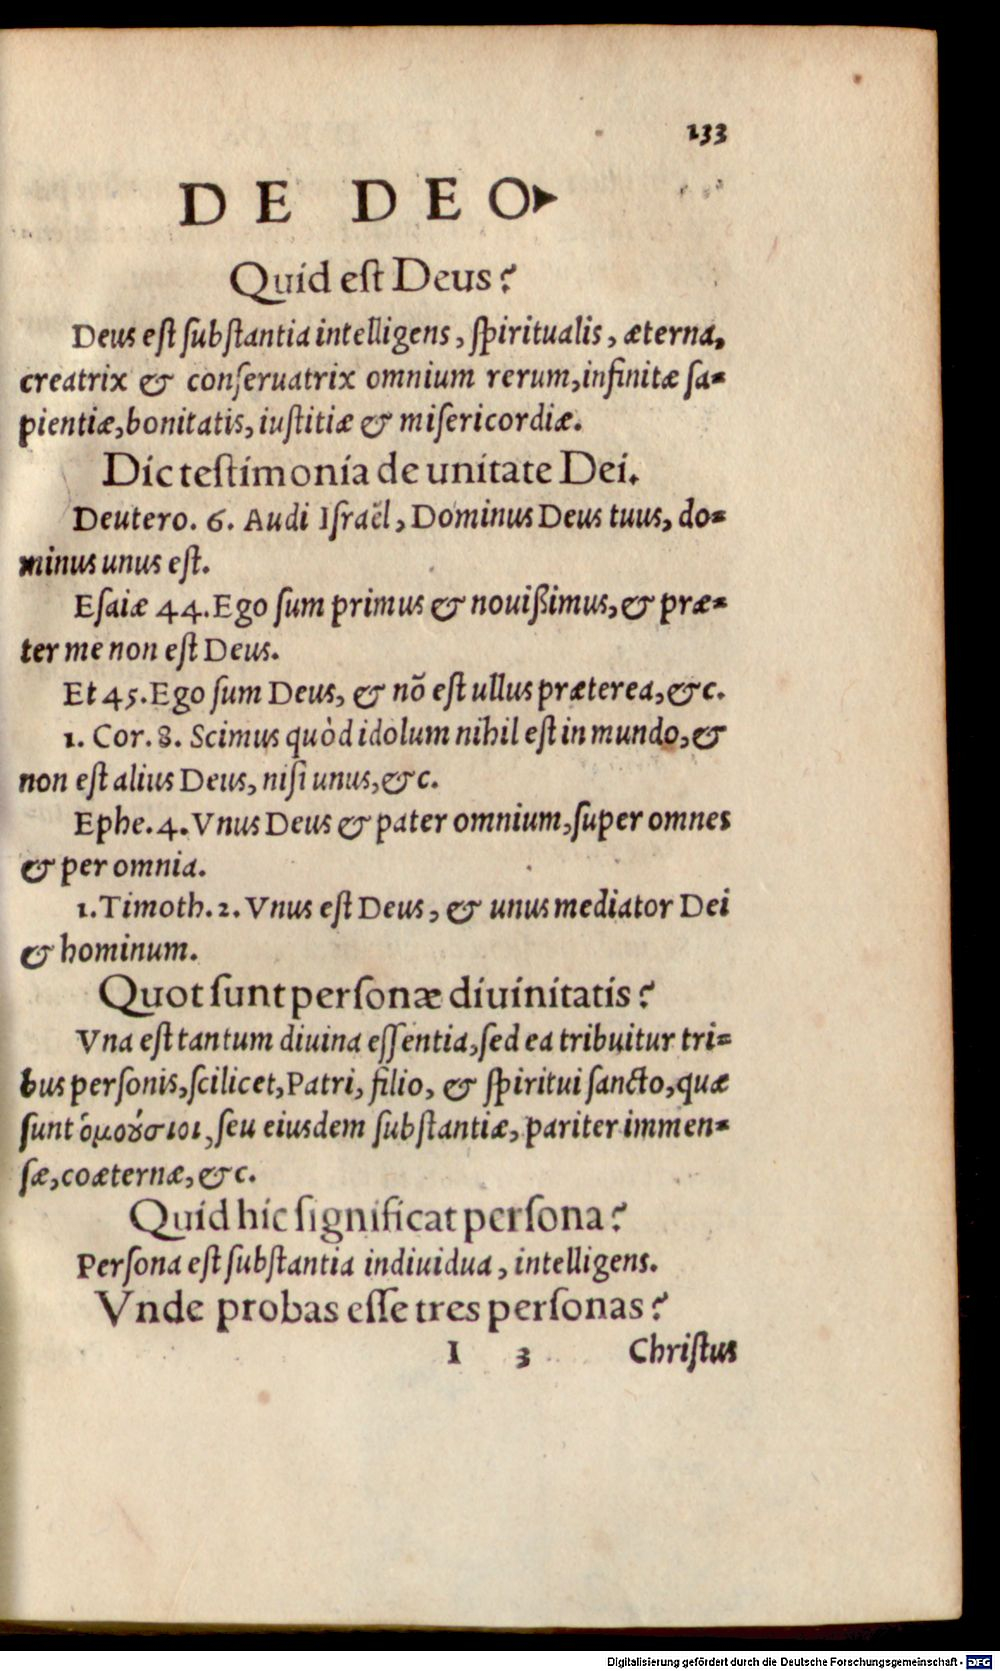 133
DE DEO
Quid est Deus?
Deus est substantia intelligens, spiritualis, æterna,
creatrix & conseruatrix omnium rerum, infinitæ sa-
pientiæ, bonitatis, iustitiæ & misericordiæ.
Dic testimonia de unitate Dei.
Deutero. 6. Audi Israël, Dominus Deus tuus, do-
minus unus est.
Esaiæ 44. Ego sum primus & nouißimus, & præ-
ter me non est Deus.
Et 45. Ego sum Deus, & nõ est ullus præterea, &c.
1. Cor. 8. Scimus quòd idolum nihil est in mundo, &
non est alius Deus, nisi unus, &c.
Ephe. 4. Vnus Deus & pater omnium, super omnes
& per omnia.
1. Timoth. 2. Vnus est Deus, & unus mediator Dei
& hominum.
Quot sunt personæ diuinitatis?
Vna est tantum diuina essentia, sed ea tribuitur tri-
bus personis, scilicet, Patri, filio, & spiritui sancto, quæ
sunt ὁμούσιοι, seu eiusdem substantiæ, pariter immen-
sæ, coæternæ, &c.
Quid hic significat persona?
Persona est substantia indiuidua, intelligens.
Vnde probas esse tres personas?
I 3 Christus
Digitalisierung gefördert durch die Deutsche Forschungsgemeinschaft - DFG